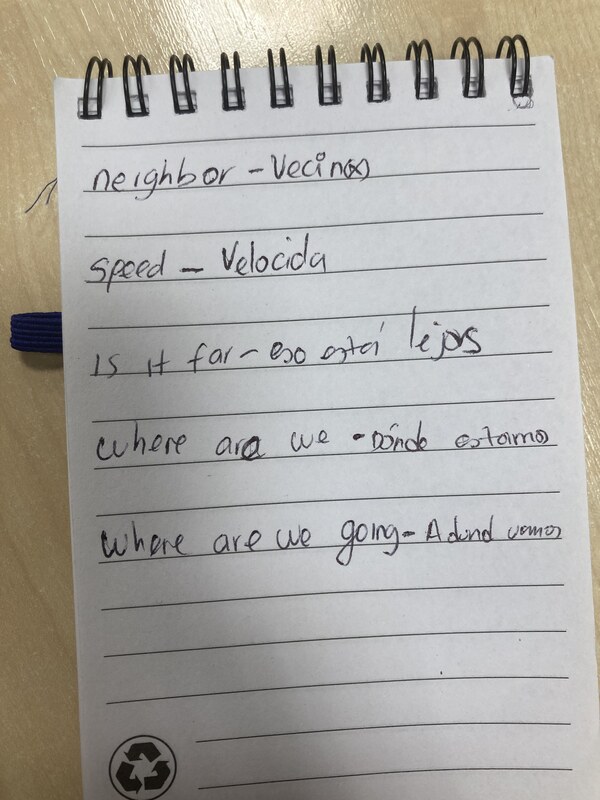 neighbor - Vecin(x)
speed - Velocida
Is it far - eso está lejos
where are we - Dónde estamos
where are we going - A dond vamos